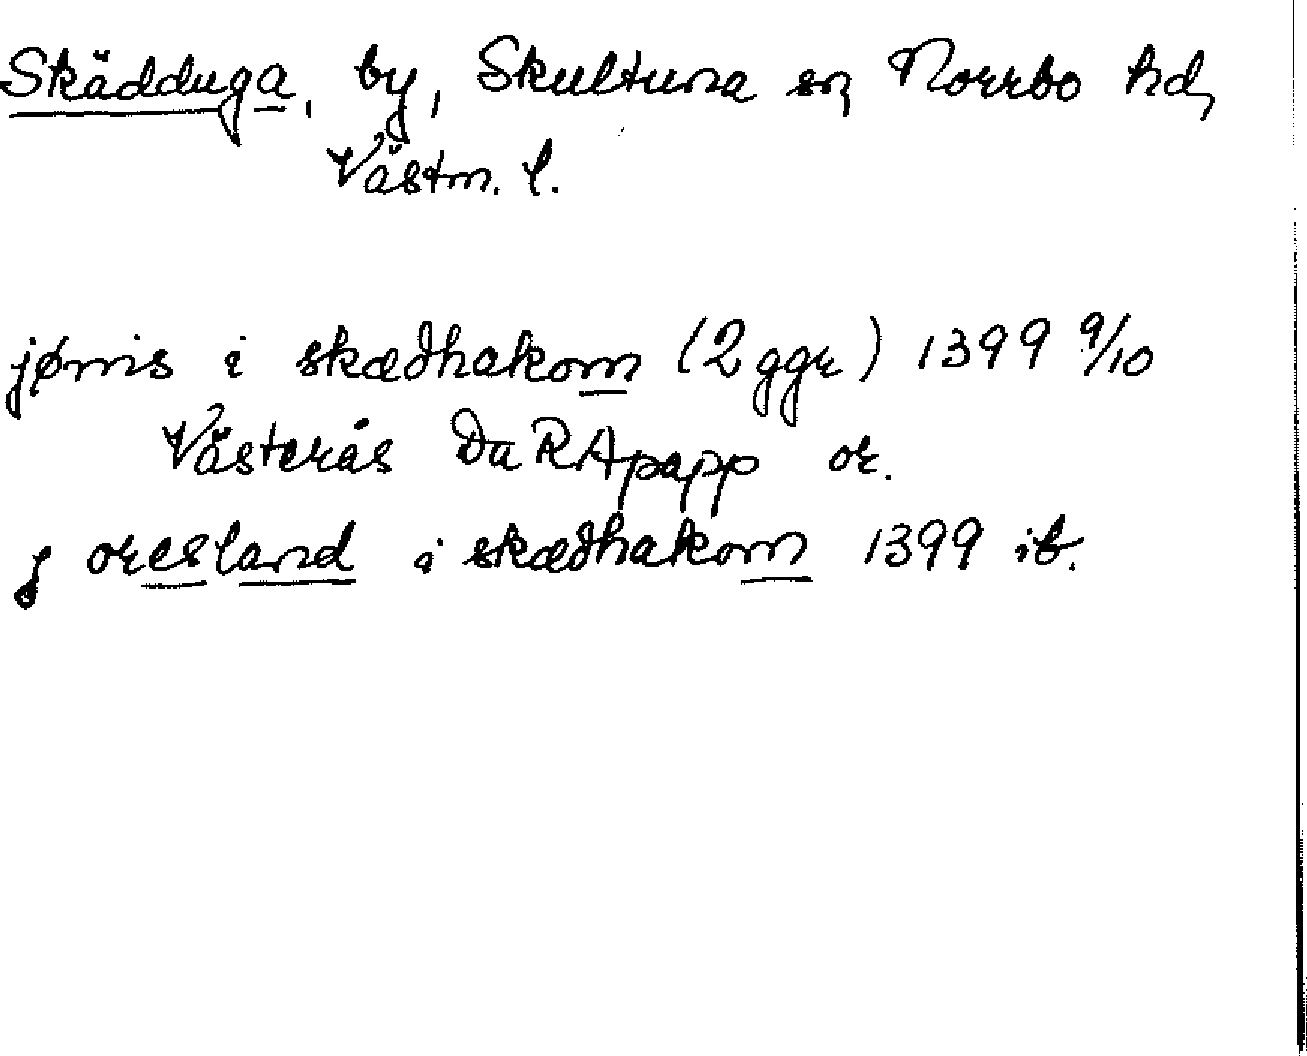 Skädduga, by, Skultuna sn, Norrbo hd,
Västm. l.
jønis i skædhakom (2 ggr) 1399 9/10
Västerås Da RApapp or.
j øresland i skædhakom 1399 ib.